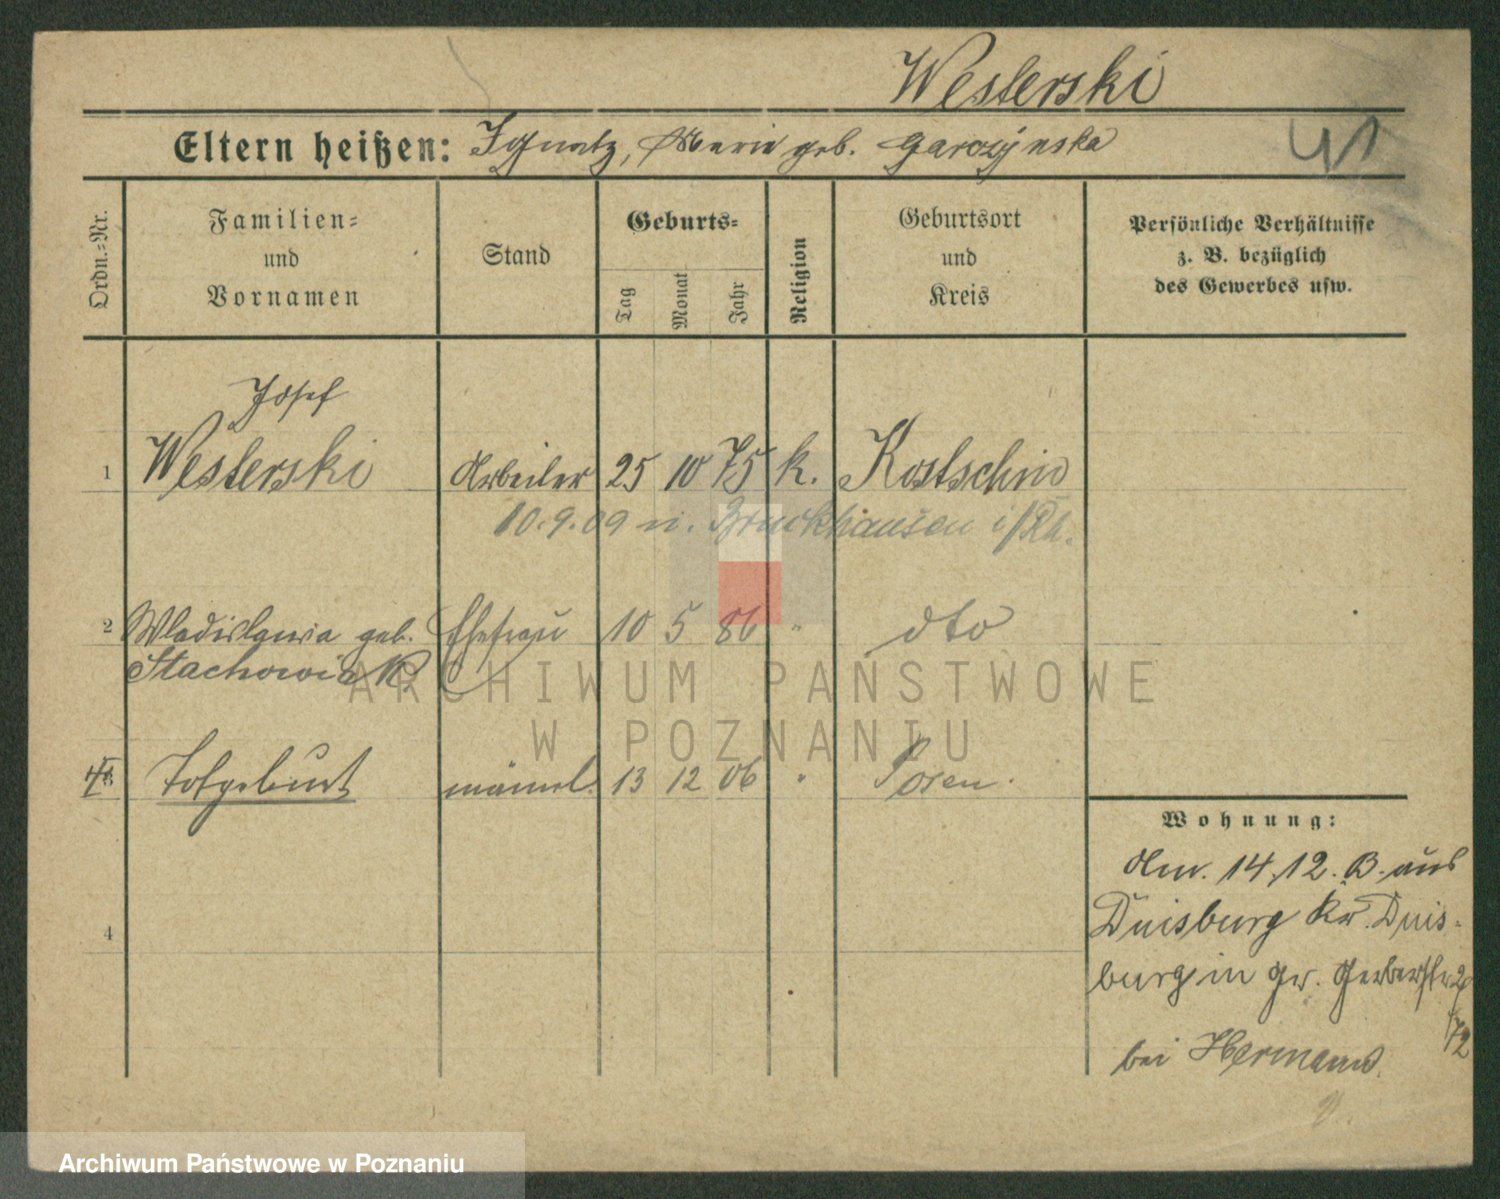 Westerski
Eltern heißen: Ignatz, Marie geb. Garczynska
41
Ordn.=Nr.
Familien=
und
Vornamen
Stand
Geburts=
Tag
Monat
Jahr
Religion
Geburtsort
und
Kreis
Persönliche Verhältnisse
z. B. bezüglich
des Gewerbes usw.
Josef
1 Westerski Arbeiter 25 10 75 k. Kostschin
10.9.09 n. Bruckhausen i/Rh.
2 Wladislawa geb. Ehefrau 10 5 86 " dto
Stachowiak
Totgeburt männl. 13 12 06 " Posen.
4
Wohnung:
14.12. aus
Duisburg Kr. Duis-
burg in Gr. Gerberstr.
bei Hermann.
ARCHIWUM PAŃSTWOWE
W POZNANIU
Archiwum Państwowe w Poznaniu